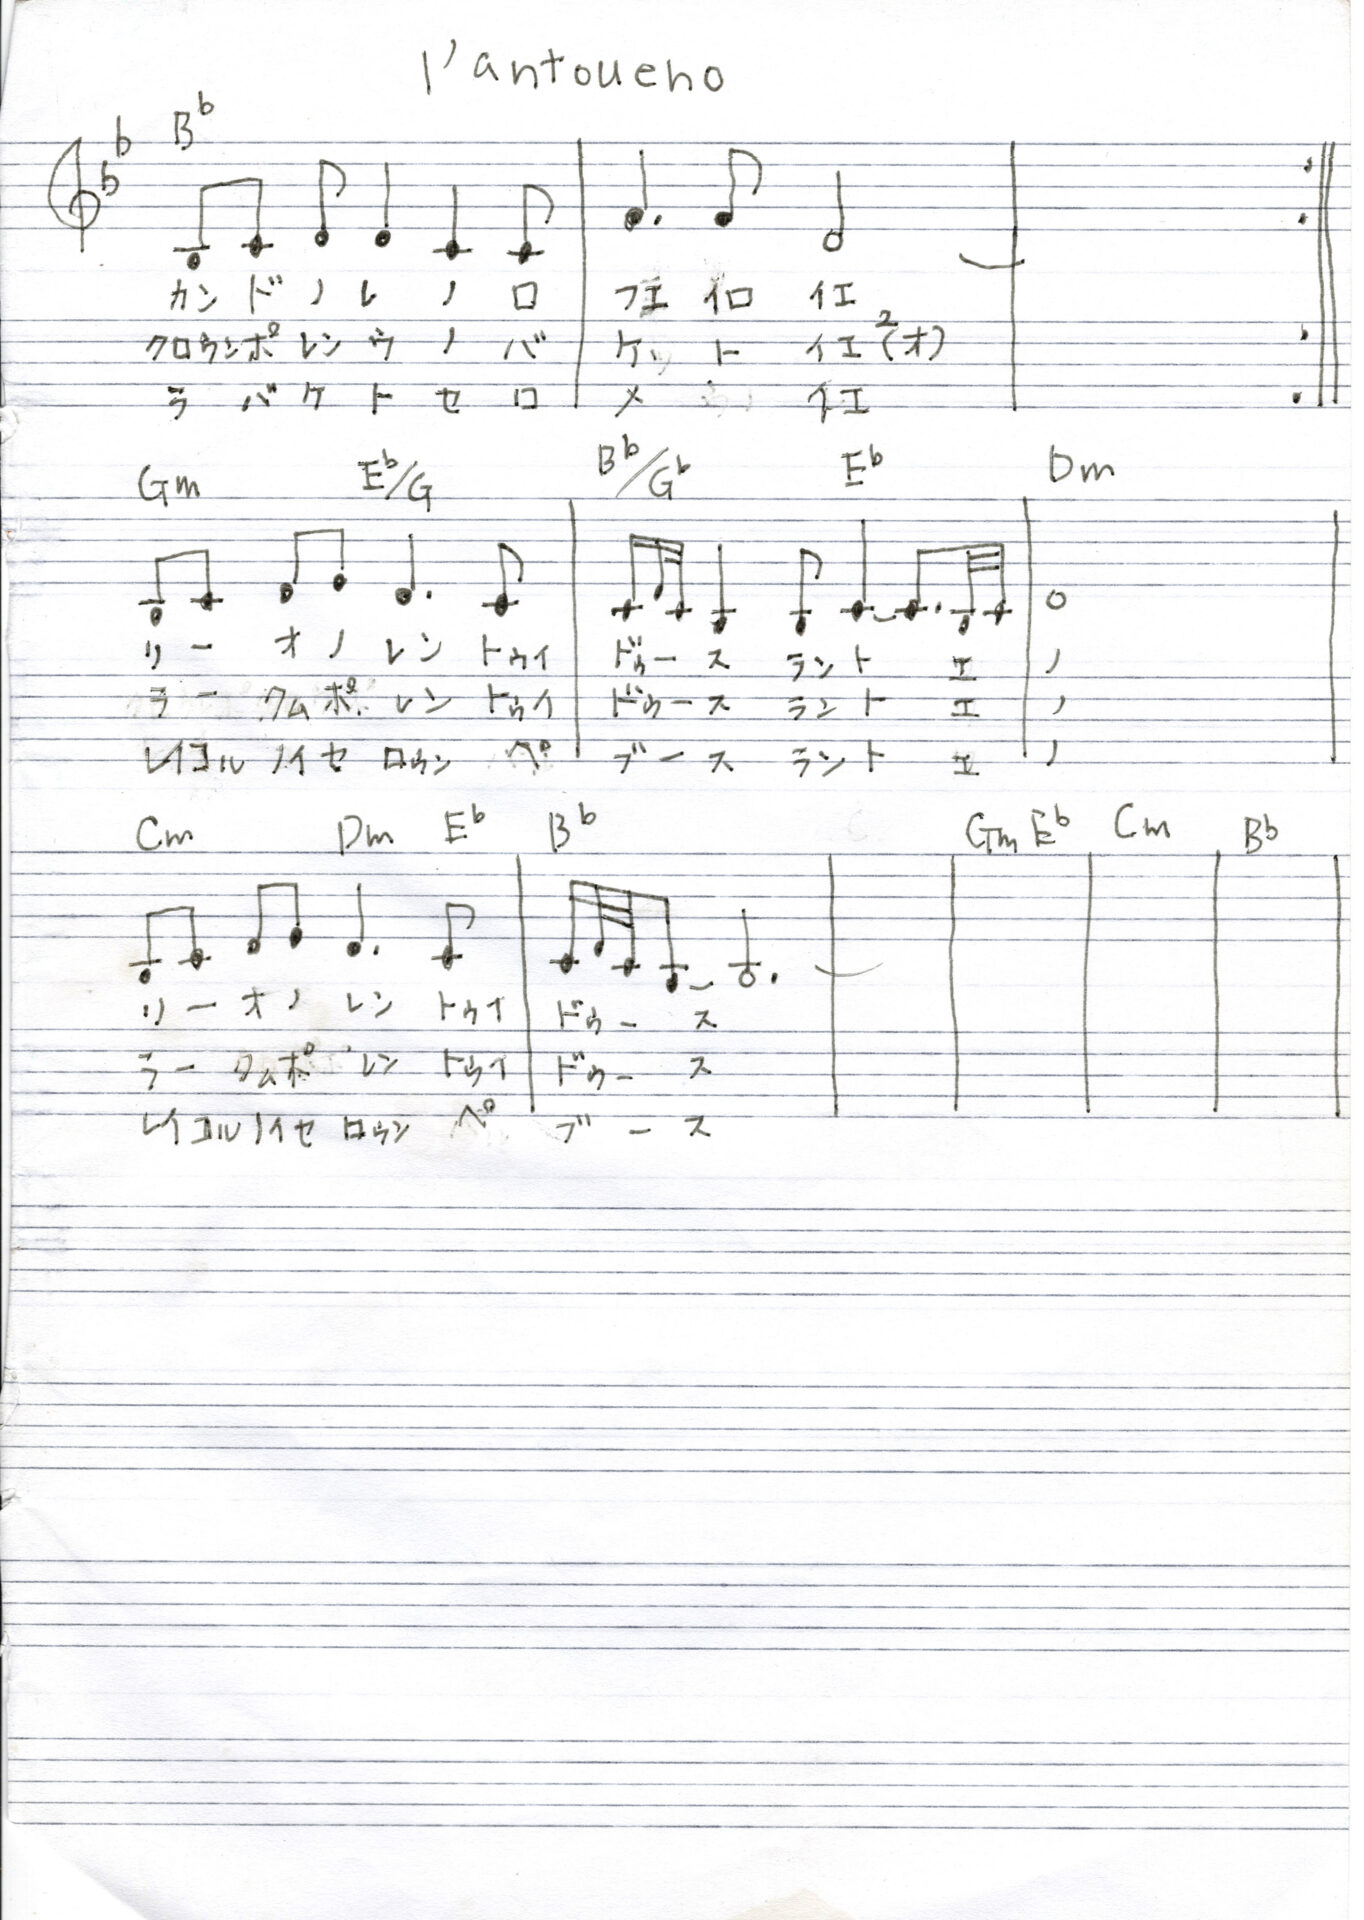 l'antoueno
B♭
カン ド ノ レ ノ ロ フエ イロ イエ
クロウンポ レン ウ ノ バ ケッ ト イエ 2(オ)
ラ バ ケ ト セ ロ メ イエ
Gm E♭/G B♭/G♭ E♭ Dm
リー オノ レン トゥイ ドゥース ラント エ ノ
ラー クムポ レン トゥイ ドゥース ラント エ ノ
レイコルノイセ ロゥン ペ ブース ラント エ ノ
Cm Dm E♭ B♭ Gm E♭ Cm B♭
リー オノ レン トゥイ ドゥース
ラー クムポ レン トゥイ ドゥース
レイコルノイセ ロゥン ペ ブース